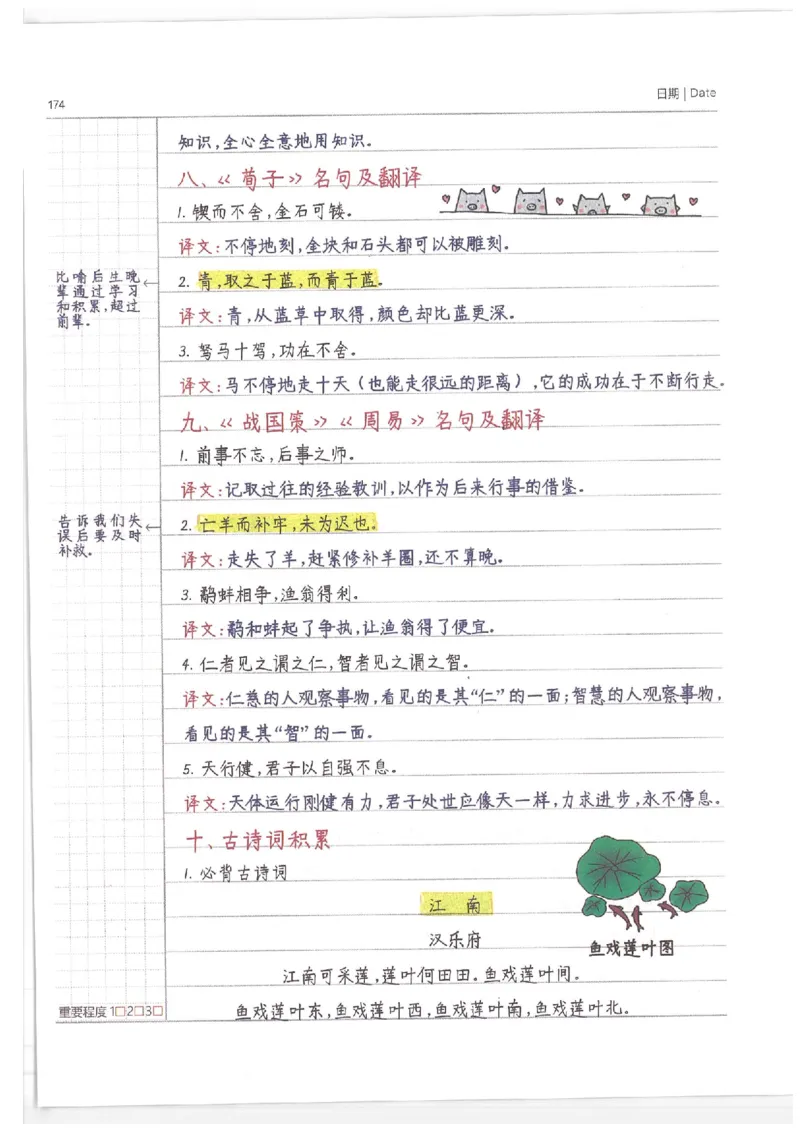 174
日期 | Date
知识,全心全意地用知识。
八、《荀子》名句及翻译
1. 锲而不舍,金石可镂。
译文:不停地刻,金块和石头都可以被雕刻。
比喻后生晚
辈通过学习
和积累,超过
前辈。
2. 青,取之于蓝,而青于蓝。
译文:青,从蓝草中取得,颜色却比蓝更深。
3. 驽马十驾,功在不舍。
译文:马不停地走十天(也能走很远的距离),它的成功在于不断行走。
九、《战国策》《周易》名句及翻译
1. 前事不忘,后事之师。
译文:记取过往的经验教训,以作为后来行事的借鉴。
告诉我们失
误后要及时
补救。
2. 亡羊而补牢,未为迟也。
译文:走失了羊,赶紧修补羊圈,还不算晚。
3. 鹬蚌相争,渔翁得利。
译文:鹬和蚌起了争执,让渔翁得了便宜。
4. 仁者见之谓之仁,智者见之谓之智。
译文:仁慈的人观察事物,看见的是其“仁”的一面;智慧的人观察事物,
看见的是其“智”的一面。
5. 天行健,君子以自强不息。
译文:天体运行刚健有力,君子处世应像天一样,力求进步,永不停息。
十、古诗词积累
1. 必背古诗词
江 南
汉乐府
鱼戏莲叶图
江南可采莲,莲叶何田田。鱼戏莲叶间。
鱼戏莲叶东,鱼戏莲叶西,鱼戏莲叶南,鱼戏莲叶北。
重要程度 1□2□3□